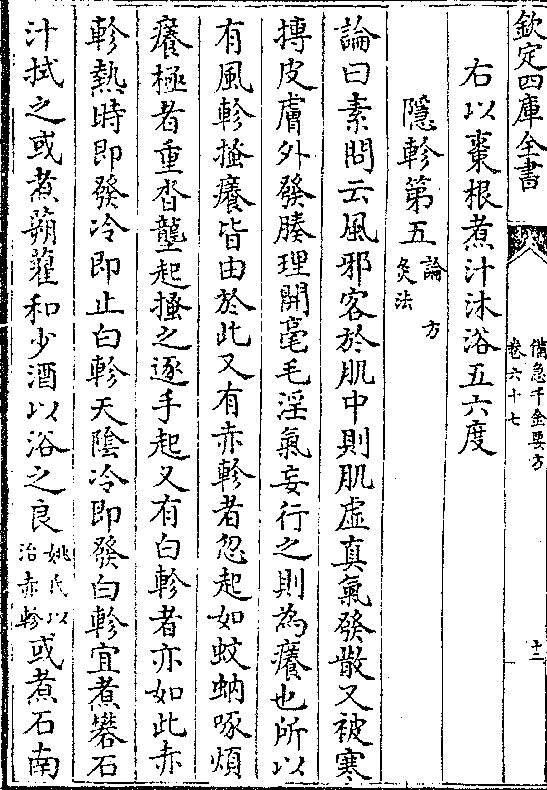 欽定四庫全書
備急千金要方
卷六十七
十二
右以棗根煮汁沐浴五六度
隱軫第五論 方
灸法
論曰素問云風邪客於肌中則肌虛真氣發散又被寒
搏皮膚外發腠理開毫毛淫氣妄行之則為癢也所以
有風軫搔癢皆由於此又有赤軫者忽起如蚊蚋啄煩
癢極者重沓壟起搔之逐手起又有白軫者亦如此赤
軫熱時即發冷即止白軫天陰冷即發白軫宜煮礬石
汁拭之或煮蒴藋和少酒以浴之良姚氏以治赤軫或煮石南